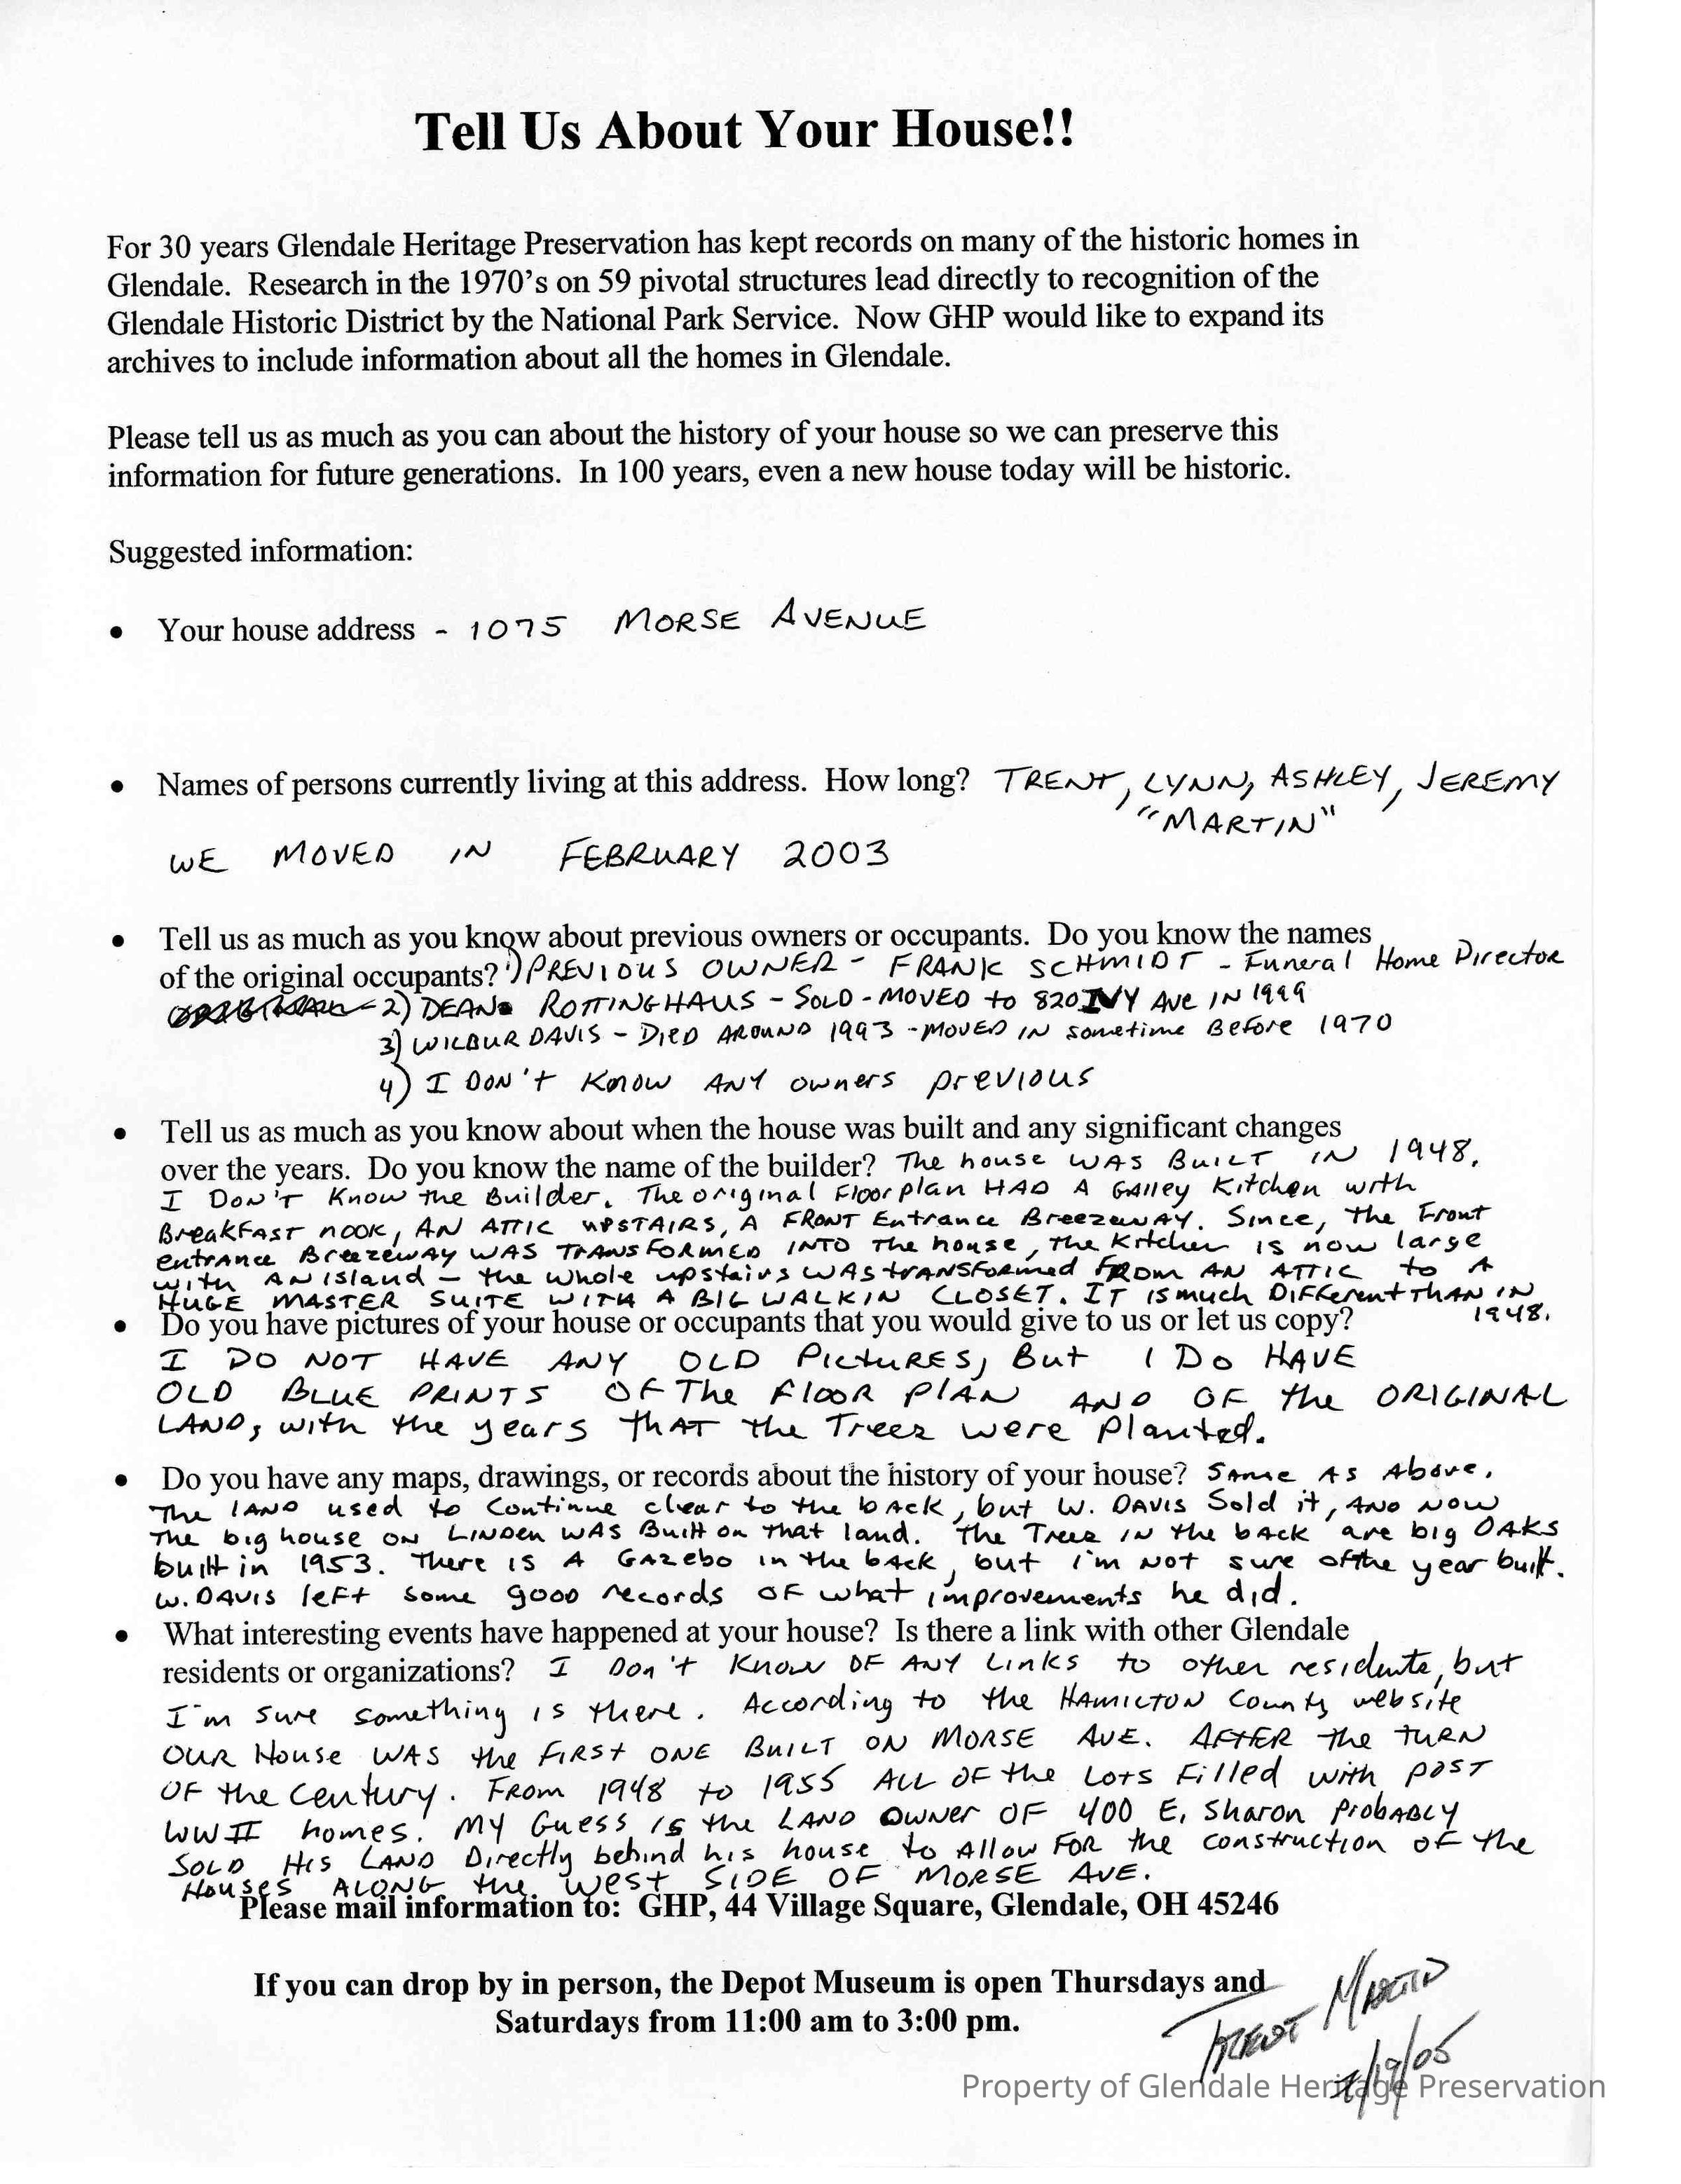 Tell Us About Your House!!
For 30 years Glendale Heritage Preservation has kept records on many of the historic homes in
Glendale. Research in the 1970's on 59 pivotal structures lead directly to recognition of the
Glendale Historic District by the National Park Service. Now GHP would like to expand its
archives to include information about all the homes in Glendale.
Please tell us as much as you can about the history of your house so we can preserve this
information for future generations. In 100 years, even a new house today will be historic.
Suggested information:
• Your house address - 1075 MORSE AVENUE
• Names of persons currently living at this address. How long? TRENT, LYNN, ASHLEY, JEREMY
"MARTIN"
WE MOVED IN FEBRUARY 2003
• Tell us as much as you know about previous owners or occupants. Do you know the names
of the original occupants? 1) PREVIOUS OWNER - FRANK SCHMIDT - Funeral Home Director
2) DEAN ROTTINGHAUS - SOLD - MOVED to 820 IVY AVE IN 1999
3) WILBUR DAVIS - DIED AROUND 1993 - MOVED IN sometime Before 1970
4) I DON'T KNOW ANY owners previous
• Tell us as much as you know about when the house was built and any significant changes
over the years. Do you know the name of the builder? The house WAS BUILT IN 1948.
I DON'T KNOW the Builder. The original Floorplan HAD A GAlley Kitchen with
BreakFAST nook, AN ATTIC UPSTAIRS, A FRONT Entrance BreezewAY. Since, the Front
entrAnce BreezewAY WAS TRANSFORMED INTO The house, the Kitchen is now large
with AN Island - the whole upstairs WAS tRANSFormed FROM AN ATTIC to A
HUGE MASTER SUITE WITH A BIG WALKIN CLOSET. IT IS much DIFFerent THAN IN
1948.
• Do you have pictures of your house or occupants that you would give to us or let us copy?
I DO NOT HAVE ANY OLD PICtURES, But I Do HAVE
OLD BLUE PRINTS OF The FlOOR PlAN AND OF the ORIGINAL
LAND, with the years THAT the Trees were planted.
• Do you have any maps, drawings, or records about the history of your house? Same AS Above.
The lAND used to Continue clear to the bAck, but W. DAVIS Sold it, AND NOW
The big house on LINDEN WAS Built on that land. The Trees IN the bAck are big OAKS
built in 1953. There IS A GAzebo in the bAck, but i'm not sure of the year built.
W. DAVIS left some good records of what improvements he did.
• What interesting events have happened at your house? Is there a link with other Glendale
residents or organizations? I Don't Know OF ANY Links to other residents, but
I'm sure something is there. According to the HAMILTON County website
OUR House WAS the FIRST ONE BUILT ON MORSE AVE. AFTER the TURN
OF the Century. From 1948 to 1955 ALL OF the Lots Filled with post
WWII homes. MY Guess is the LAND OWNER OF 400 E. Sharon ProbABLY
SOLD HIS LAND Directly behind his house to Allow FOR the construction of the
Houses ALONG the west SIDE OF MORSE AVE.
Please mail information to: GHP, 44 Village Square, Glendale, OH 45246
If you can drop by in person, the Depot Museum is open Thursdays and
Saturdays from 11:00 am to 3:00 pm.
TRENT MARTIN
/19/05
Property of Glendale Heritage Preservation